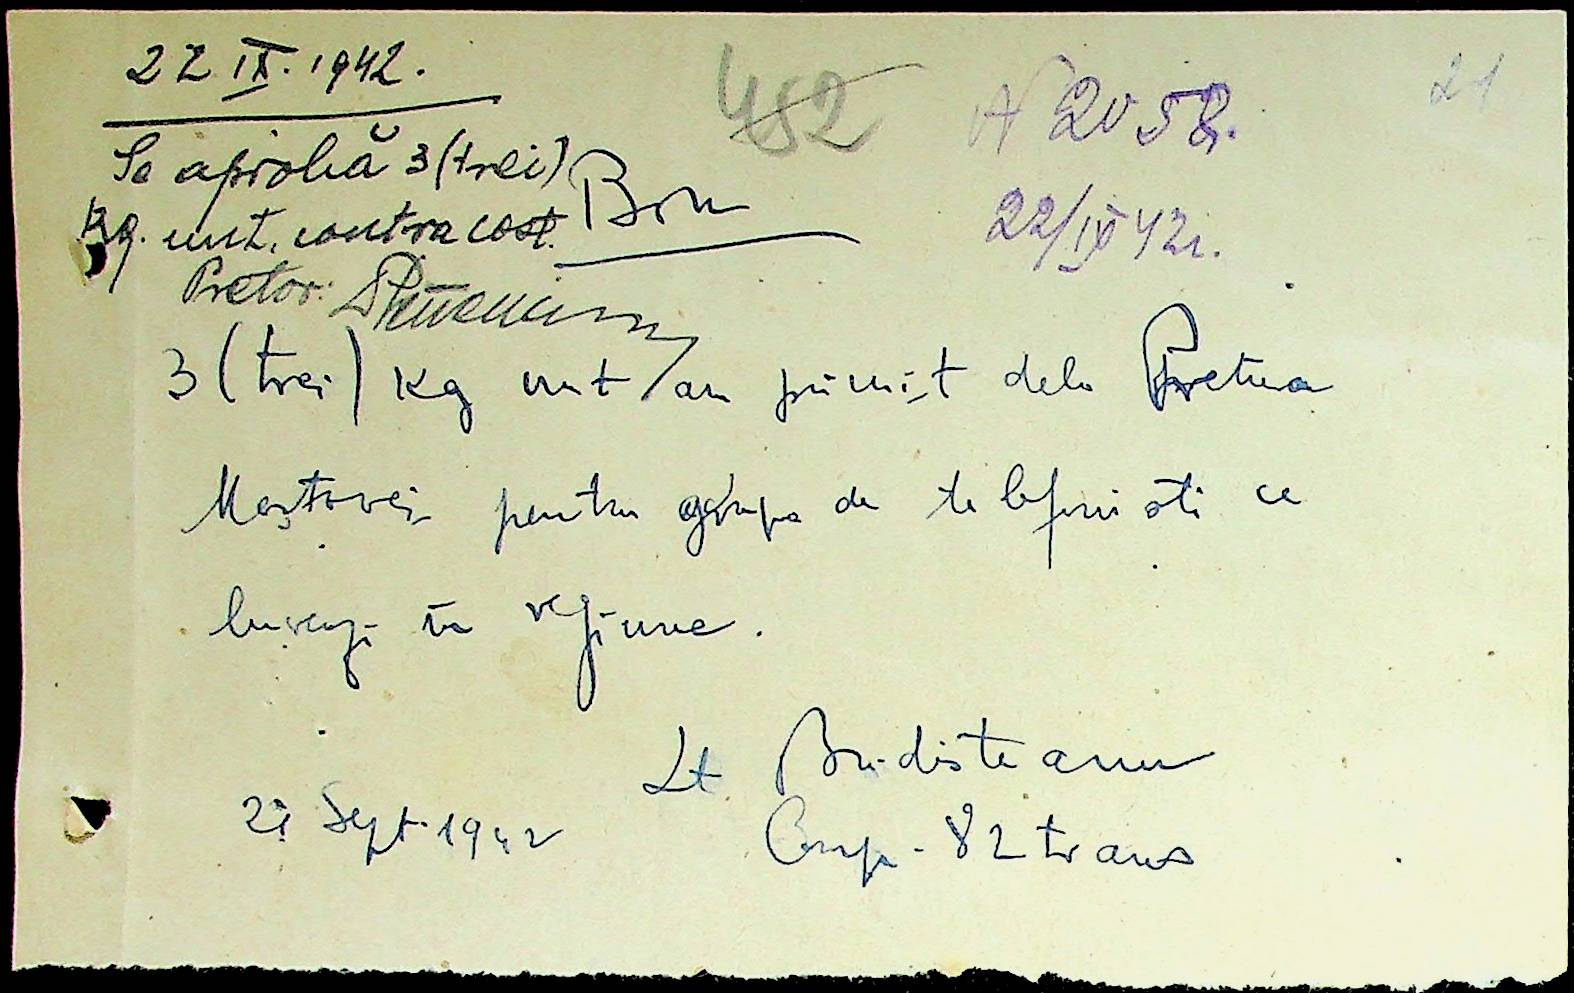 22 IX. 1942.
452
N 2058.
21
Se aprobă 3 (trei)
Kg. unt, contra cost.
Bon
22/IX 42.
Pretor:
3 (trei) Kg unt am primit dela Pretura
Mostovoi pentru grupa de telefonisti ce
lucrează in regiune.
Lt Budisteanu
22 Sept. 1942
Comp. 82 trans